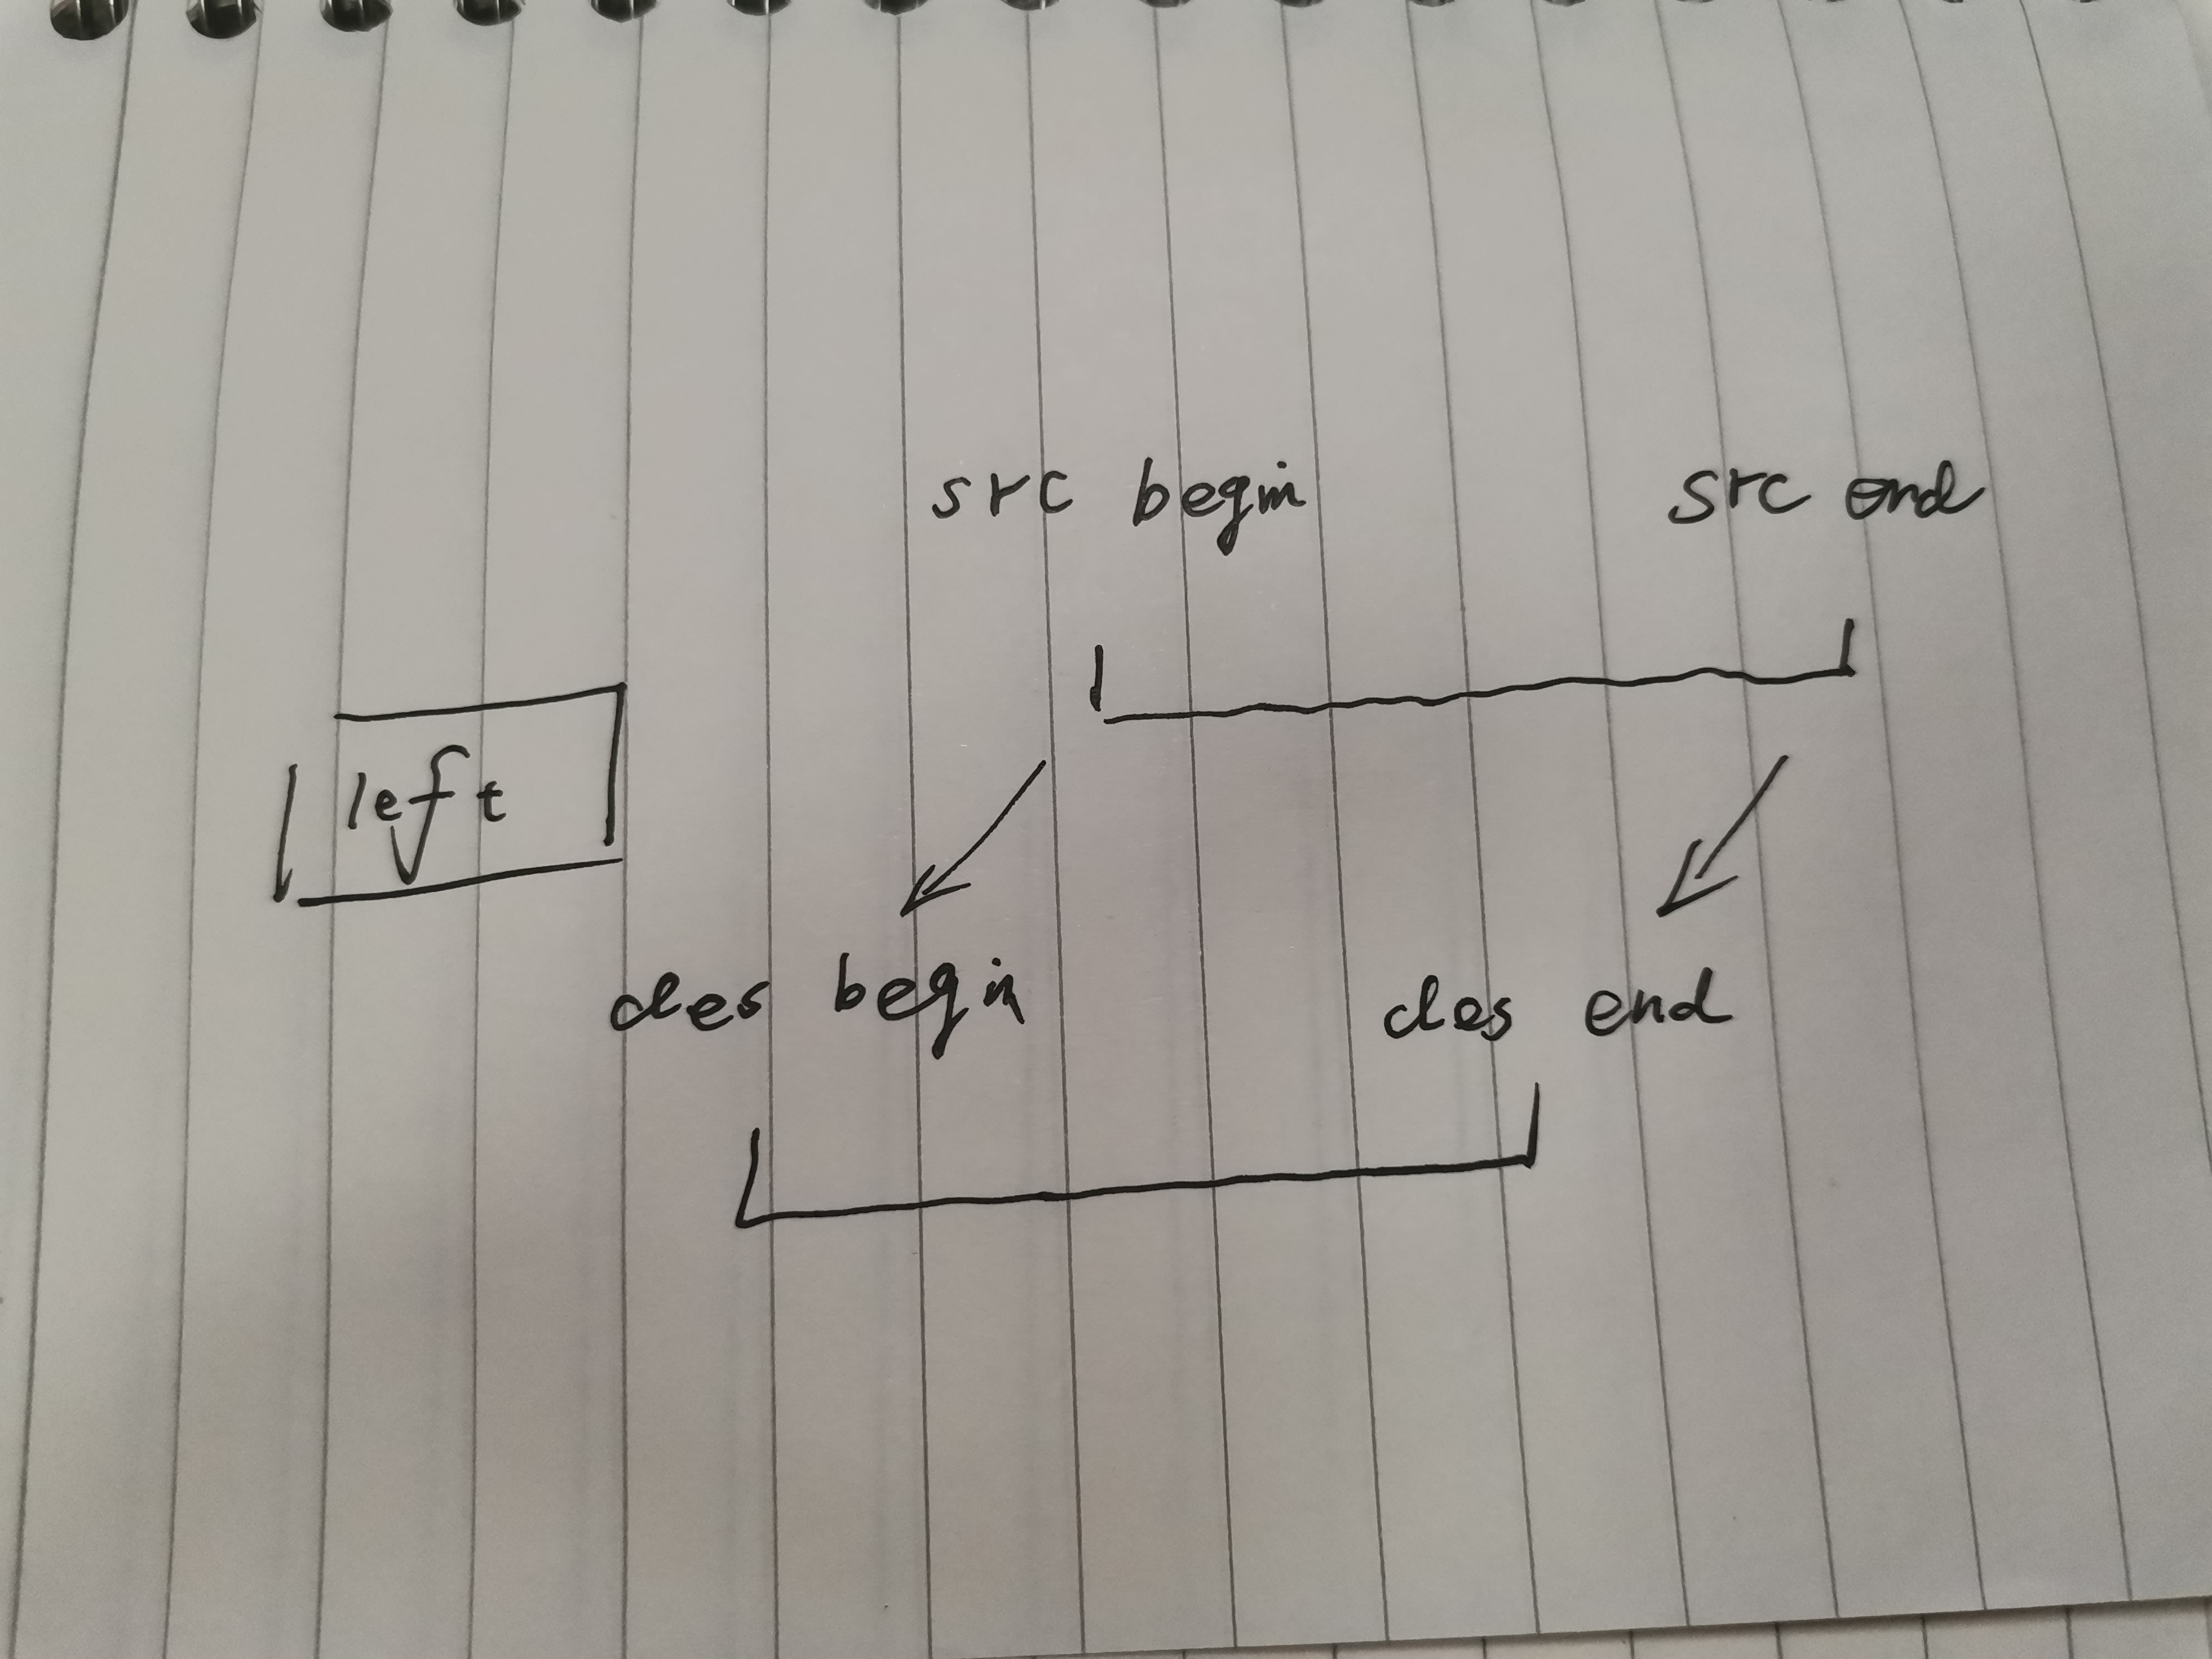 src begin src end
left
des begin des end